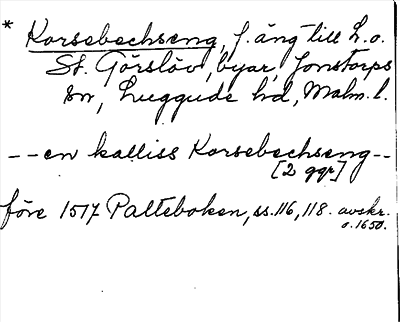 * Korsebechseng, f. äng till L. o.
St. Görslöv, byar, Jonstorps
sn, Luggude hd, Malm. l.
-- en kalliss Korsebechseng --
[2 ggr]
före 1517 Palteboken, ss. 116, 118. avskr.
o. 1650.